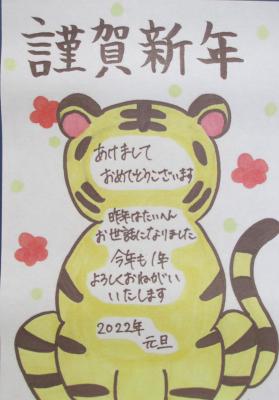 謹賀新年
あけまして
おめでとうございます
昨年はたいへん
お世話になりました
今年も1年
よろしくおねがい
いたします
2022年
元旦